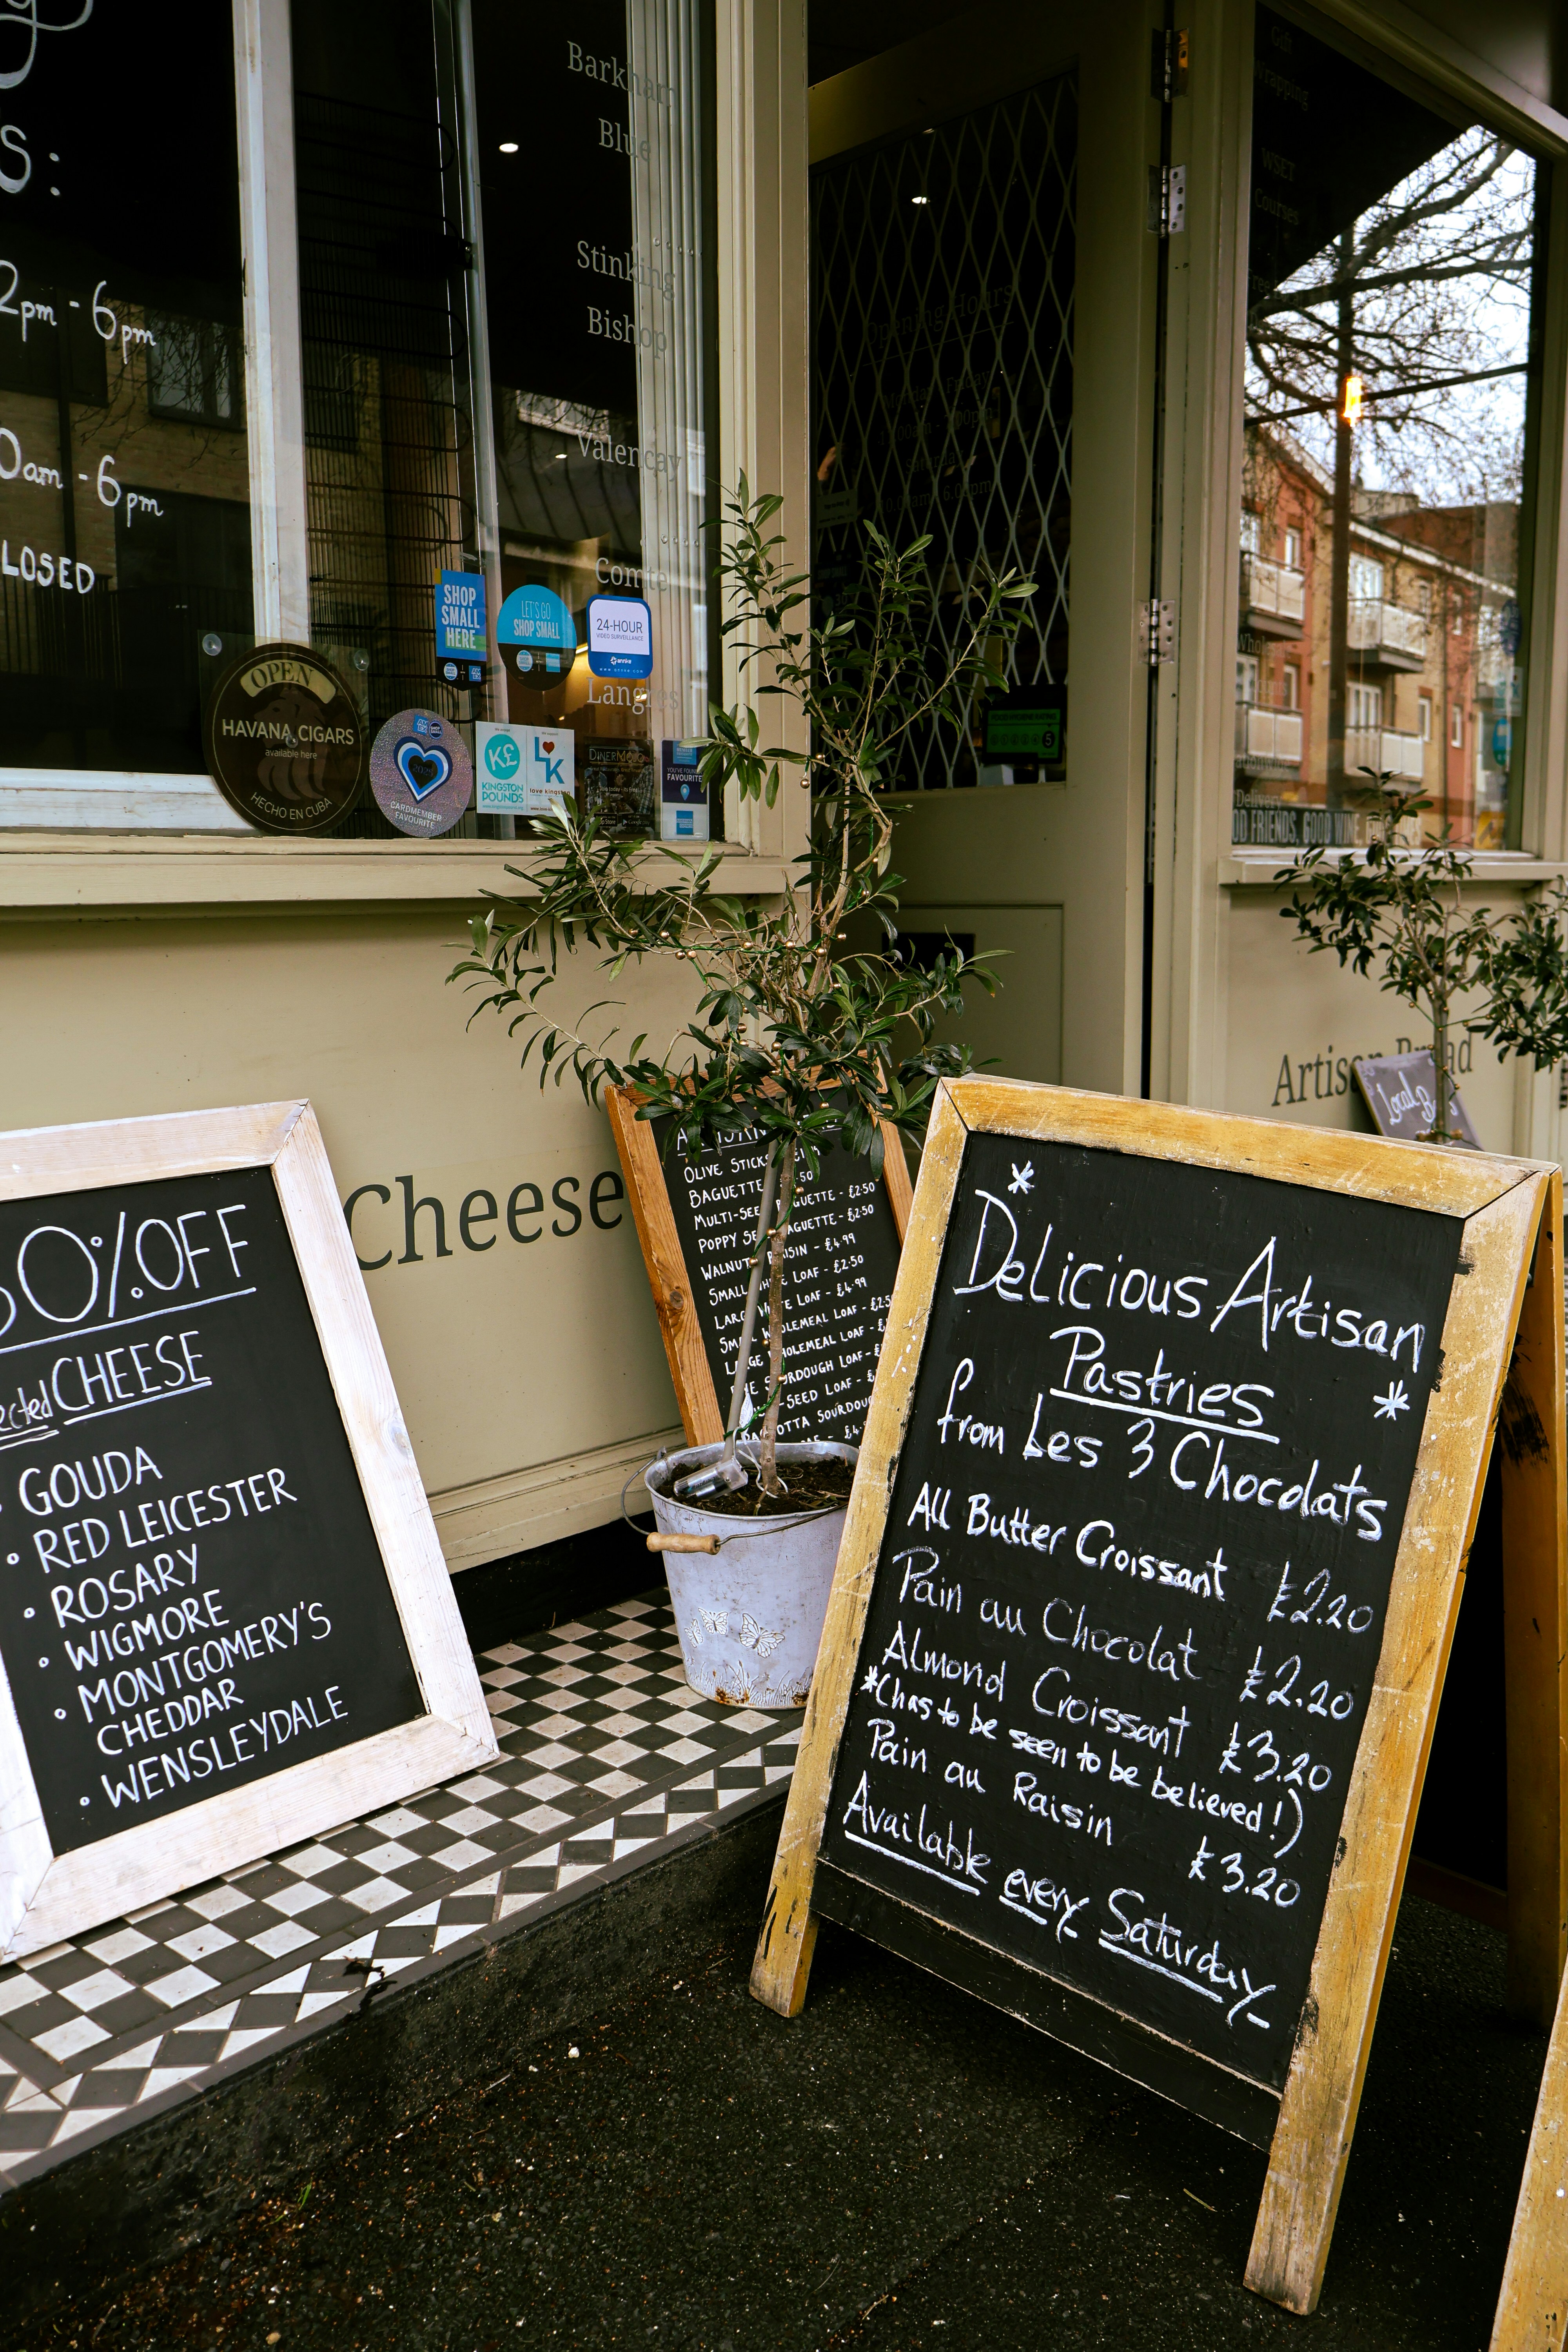 s:
2pm - 6pm
0am - 6pm
LOSED
Barkham
Blue
Stinking
Bishop
Valencay
Comte
Langres
OPEN
HAVANA CIGARS
available here
HECHO EN CUBA
SHOP
SMALL
HERE
LET'S GO
SHOP SMALL
24-HOUR
VIDEO SURVEILLANCE
annke
CARDMEMBER
FAVOURITE
K£
KINGSTON
POUNDS
LK
love kingston
DINERMOJO
FAVOURITE
Opening Hours
Monday Friday
Saturday
5
Gift
Wrapping
WSET
Courses
Delivery
OD FRIENDS, GOOD WINE,
Cheese
Artisan Bread
Local
0% OFF
ected CHEESE
• GOUDA
• RED LEICESTER
• ROSARY
• WIGMORE
• MONTGOMERY'S
CHEDDAR
• WENSLEYDALE
OLIVE STICKS
BAGUETTE 50
MULTI-SEE BAGUETTE - £2.50
POPPY SE BAGUETTE - £2.50
WALNUT RAISIN - £4.99
SMALL WHITE LOAF - £2.50
LARGE WHITE LOAF - £4.99
SMALL WHOLEMEAL LOAF - £2.5
LARGE WHOLEMEAL LOAF - £
SOURDOUGH LOAF - £
SEED LOAF - £
SOURDOUG
* Delicious Artisan
Pastries *
from Les 3 Chocolats
All Butter Croissant £2.20
Pain au Chocolat £2.20
Almond Croissant £3.20
*(has to be seen to be believed!)
Pain au Raisin £3.20
Available every Saturday